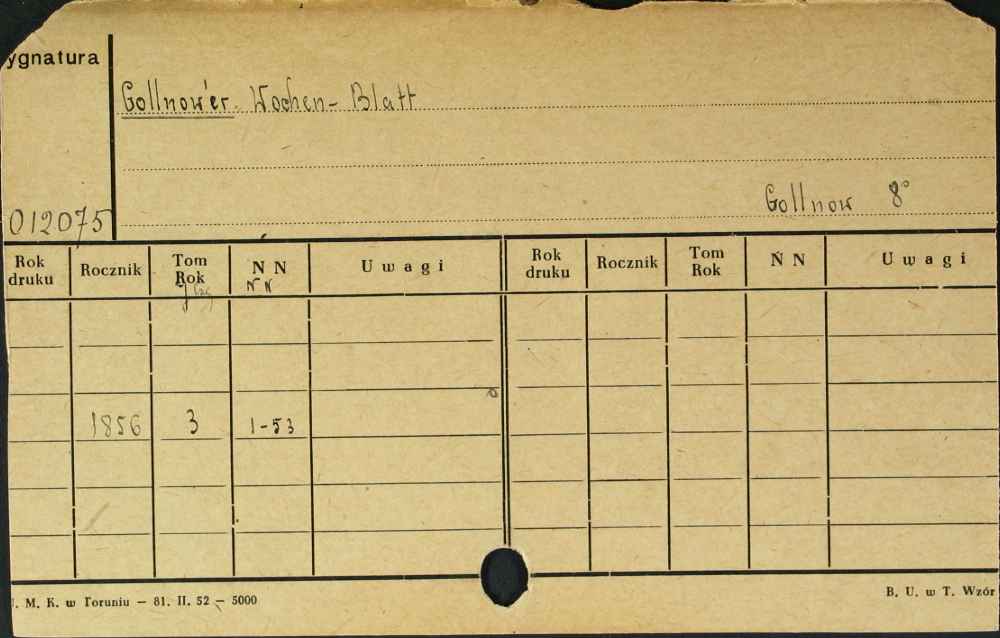 ygnatura
Gollnow'er Wochen-Blatt
Gollnow 8°
012075
Rok druku Rocznik Tom Rok N N U w a g i Rok druku Rocznik Tom Rok N N U w a g i
N N
1856 3 1-53
. M. K. w Toruniu — 81. II. 52 — 5000
B. U. w T. Wzór